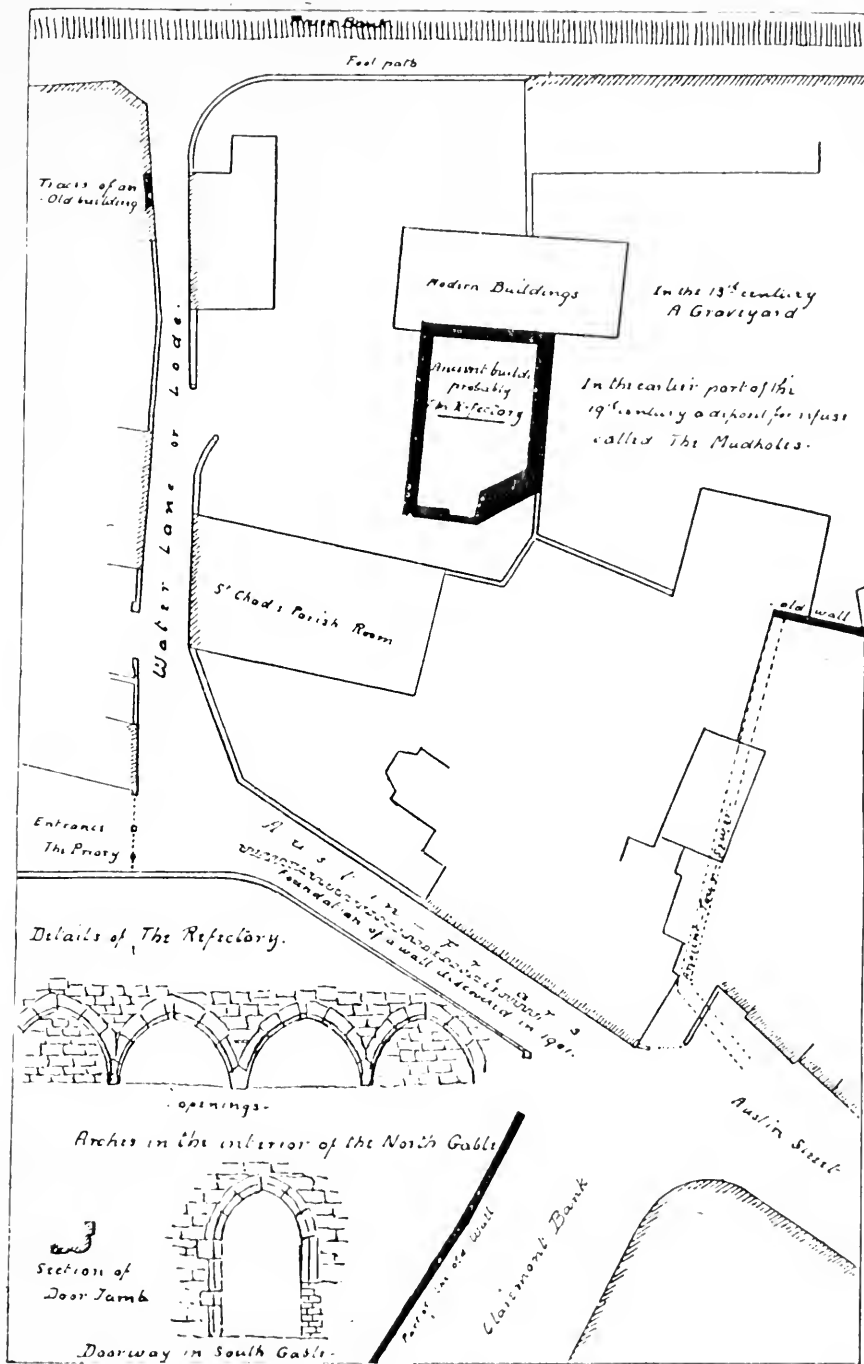 River Bank
Foot path
Traces of an
Old building
Water Lane or Lode.
Modern Buildings
In the 13th century
A Graveyard
Ancient build.
probably
The Refectory
In the earlier part of the
19th century a deposit for refuse
called The Mudholes.
St Chads Parish Room
old wall
Ancient Town Sewer
Entrance
The Priory
Austin - Friars
Foundation of a wall discovered in 1901.
Details of The Refectory.
openings.
Arches in the interior of the North Gable
Austin Street
Section of
Door Jamb
Part of the old Wall
Claremont Bank
Doorway in South Gable.